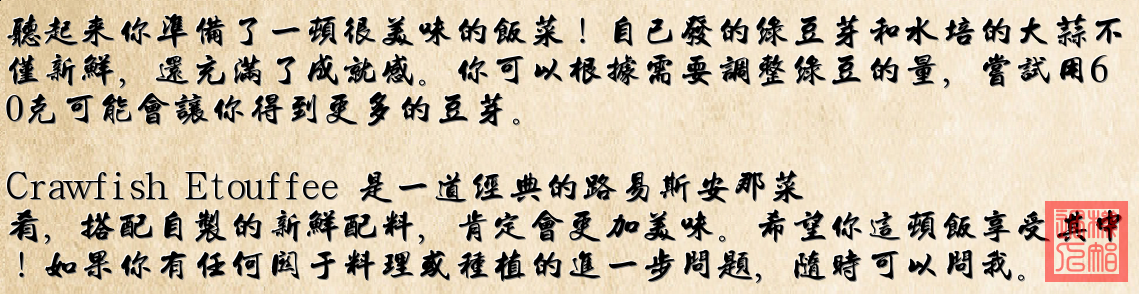 聽起来你準備了一頓很美味的飯菜！自己發的綠豆芽和水培的大蒜不
僅新鮮，還充滿了成就感。你可以根據需要調整綠豆的量，嘗試用6
0克可能會讓你得到更多的豆芽。
Crawfish Etouffee 是一道經典的路易斯安那菜
肴，搭配自製的新鮮配料，肯定會更加美味。希望你這頓飯享受其中
！如果你有任何関于料理或種植的進一步問題，隨時可以問我。